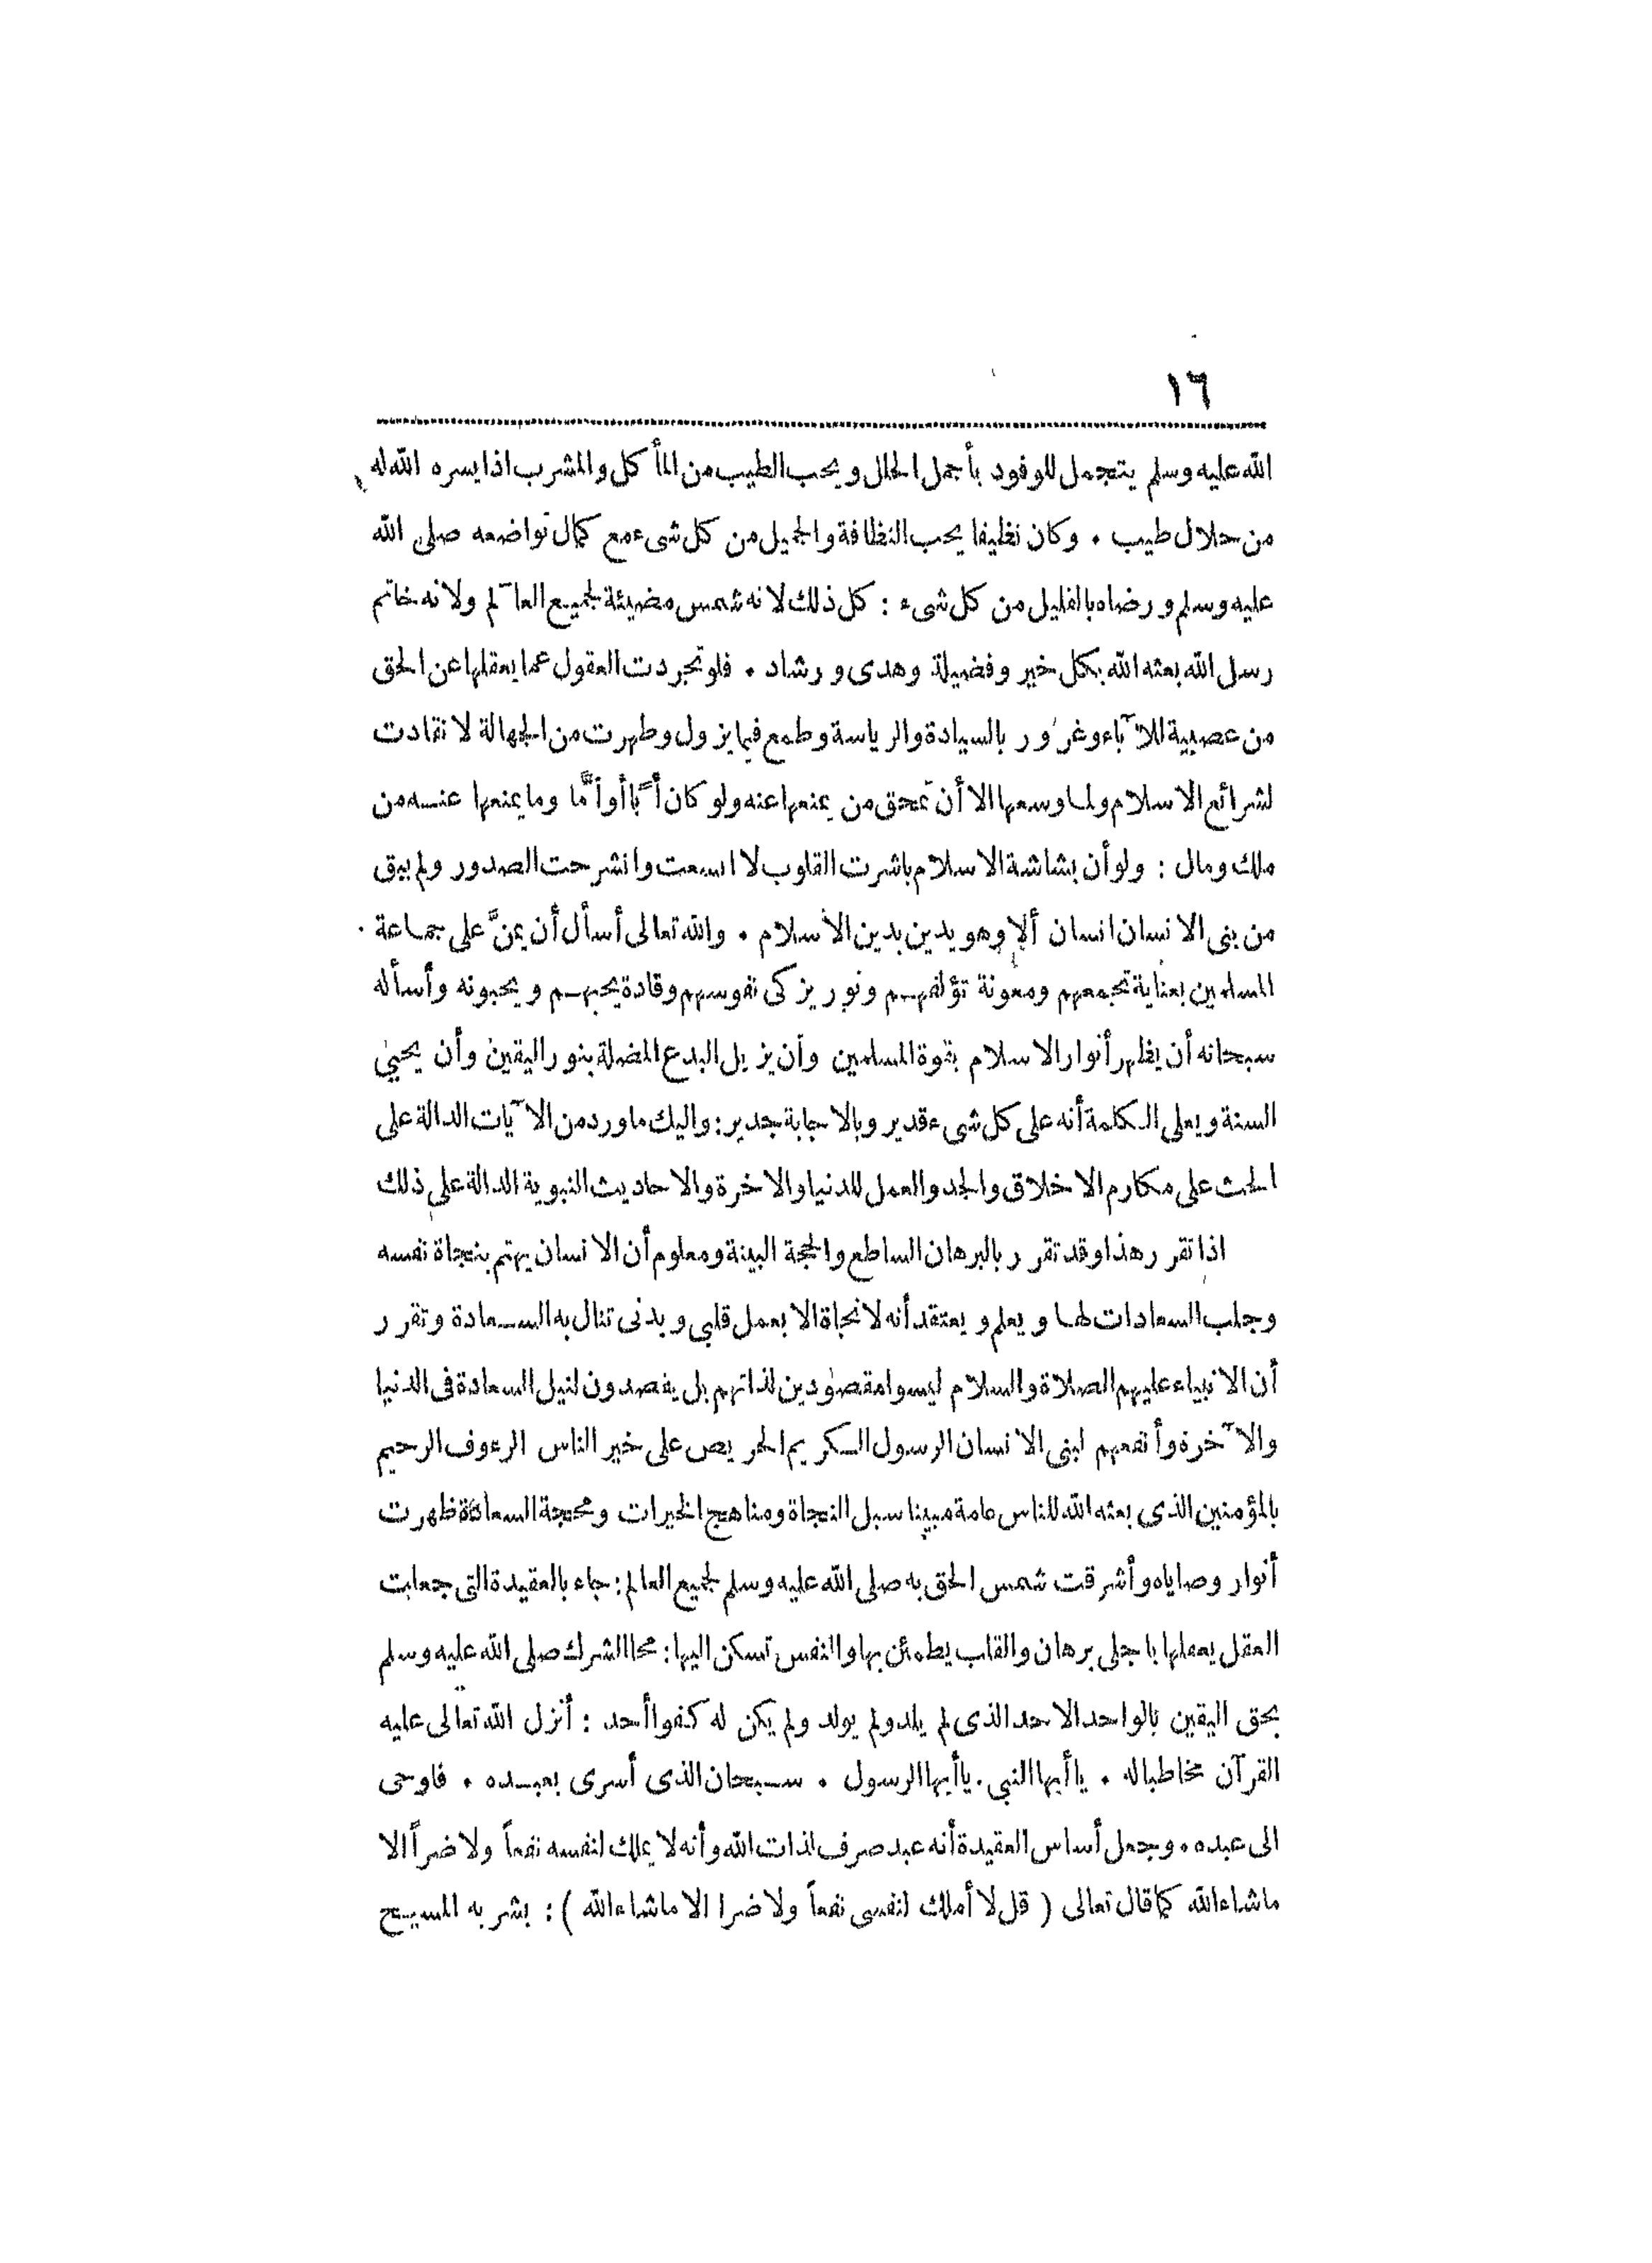 ١٦
الله عليه وسلم يتجمل للوفود بأجمل الحلل ويحب الطيب من المأكل والمشرب اذا يسره الله له
من حلال طيب . وكان نظيفا يحب النظافة والجميل من كل شىء مع كمال تواضعه صلى الله
عليه وسلم ورضاه بالقليل من كل شىء : كل ذلك لانه شمس مضيئة لجميع العالم ولانه خاتم
رسل الله بعثه الله بكل خير وفضيلة وهدى ورشاد . فلو تجردت العقول عما يعقلها عن الحق
من عصبية للآباء وغرور بالسيادة والرياسة وطمع فيما يزول وطهرت من الجهالة لانقادت
لشرائع الاسلام ولما وسعها الا أن تمحق من يمنعها عنه ولو كان أباً أو أمًّا وما يمنعها عنه من
ملك ومال : ولو أن بشاشة الاسلام باشرت القلوب لا اتسعت وانشرحت الصدور ولم يبق
من بنى الانسان انسان ألا وهو يدين بدين الاسلام . والله تعالى أسأل أن يمنَّ على جماعة
المسلمين بعناية تجمعهم ومعونة تؤلفهم ونور يزكى نفوسهم وقادة يحبهم ويحبونه وأسأله
سبحانه أن يظهر أنوار الاسلام بقوة المسلمين وأن يزيل البدع المضلة بنور اليقين وأن يحيي
السنة ويعلى الكلمة أنه على كل شىء قدير وبالاجابة جدير : واليك ما ورد من الآيات الدالة على
الحث على مكارم الاخلاق والجد والعمل للدنيا والاخرة والاحاديث النبوية الدالة على ذلك
اذا تقرر هذا وقد تقرر بالبرهان الساطع والحجة البينة ومعلوم أن الانسان يهتم بنجاة نفسه
وجلب السعادات لها ويعلم ويعتقد أنه لا نجاة الا بعمل قلبى وبدنى تنال به السعادة وتقرر
أن الانبياء عليهم الصلاة والسلام ليسوا مقصودين لذاتهم بل يقصدون لنيل السعادة فى الدنيا
والآخرة وأنفعهم لبنى الانسان الرسول الكريم الحريص على خير الناس الرءوف الرحيم
بالمؤمنين الذى بعثه الله للناس عامة مبينا سبل النجاة ومناهج الخيرات ومحجة السعادة ظهرت
أنوار وصاياه وأشرقت شمس الحق به صلى الله عليه وسلم لجميع العالم : جاء بالعقيدة التى جعلت
العقل يعقلها باجلى برهان والقلب يطمئن بها والنفس تسكن اليها : محا الشرك صلى الله عليه وسلم
بحق اليقين بالواحد الاحد الذى لم يلد ولم يولد ولم يكن له كفوا أحد : أنزل الله تعالى عليه
القرآن مخاطبا له . يا أيها النبي . يا أيها الرسول . سبحان الذى أسرى بعبده . فاوحى
الى عبده . وجعل أساس العقيدة أنه عبد صرف لذات الله وأنه لا يملك لنفسه نفعاً ولا ضراً الا
ما شاء الله كما قال تعالى ( قل لا أملك لنفسى نفعاً ولا ضرا الا ما شاء الله ) : بشر به المسيح